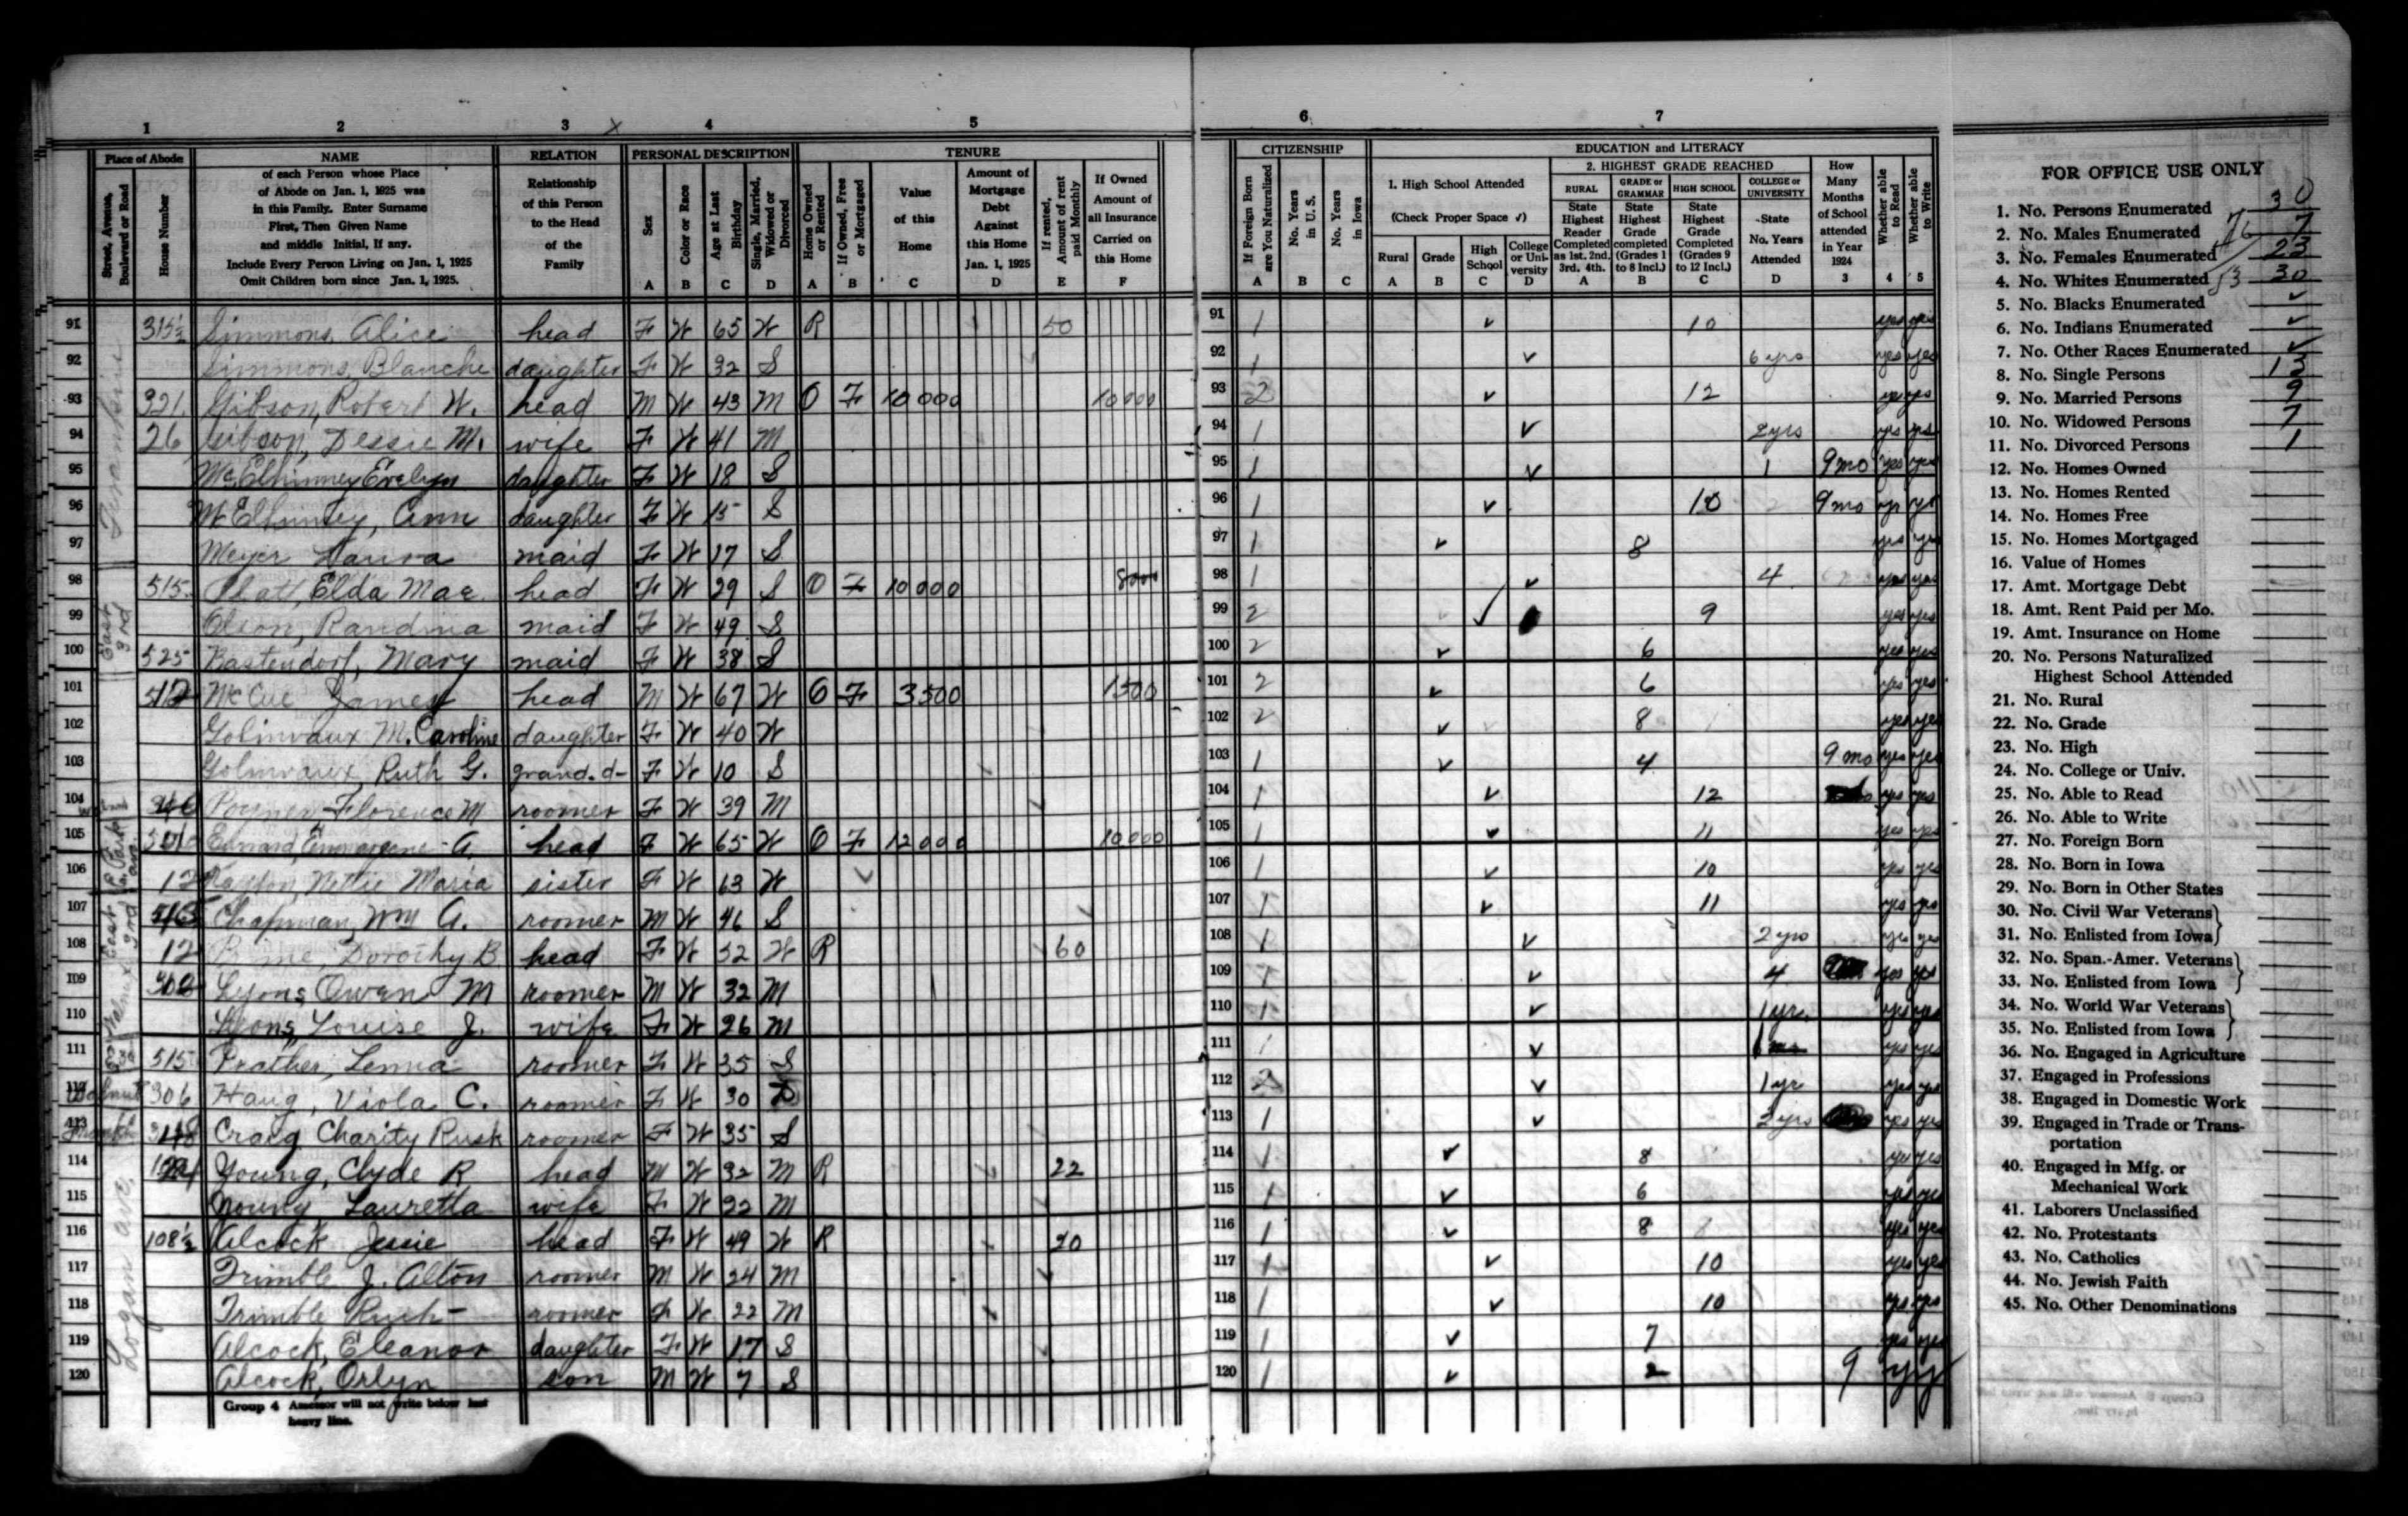 1 2 3 X 4 5 6 7
Place of Abode NAME RELATION PERSONAL DESCRIPTION TENURE CITIZENSHIP EDUCATION and LITERACY
Street, Avenue, Boulevard or Road
House Number
of each Person whose Place
of Abode on Jan. 1, 1925 was
in this Family. Enter Surname
First, Then Given Name
and middle Initial, If any.
Include Every Person Living on Jan. 1, 1925
Omit Children born since Jan. 1, 1925.
Relationship
of this Person
to the Head
of the
Family
Sex A
Color or Race B
Age at Last Birthday C
Single, Married, Widowed or Divorced D
Home Owned or Rented A
If Owned, Free or Mortgaged B
Value of this Home C
Amount of Mortgage Debt Against this Home Jan. 1, 1925 D
If rented, Amount of rent paid Monthly E
If Owned Amount of all Insurance Carried on this Home F
If Foreign Born are You Naturalized A
No. Years in U. S. B
No. Years in Iowa C
1. High School Attended
(Check Proper Space √)
Rural A
Grade B
High School C
College or University D
2. HIGHEST GRADE REACHED
RURAL State Highest Reader Completed as 1st. 2nd, 3rd. 4th. A
GRADE or GRAMMAR State Highest Grade completed (Grades 1 to 8 Incl.) B
HIGH SCHOOL State Highest Grade Completed (Grades 9 to 12 Incl.) C
COLLEGE or UNIVERSITY State No. Years Attended D
How Many Months of School attended in Year 1924 3
Whether able to Read 4
Whether able to Write 5
91 315½ Simmons, Alice head F W 65 W R 50 91 1 ✓ 10 yes yes
92 Simmons, Blanche daughter F W 32 S 92 1 ✓ 6 yrs yes yes
93 321 Gibson, Robert W. head M W 43 M O F 10000 10000 93 2 ✓ 12 yes yes
94 26 Gibson, Dessie M. wife F W 41 M 94 1 ✓ 2 yrs yes yes
95 McElhinney Evelyn daughter F W 18 S 95 1 ✓ 1 9 mo yes yes
96 McElhinney, Ann daughter F W 15 S 96 1 ✓ 10 9 mo yes yes
97 Meyer Laura maid F W 17 S 97 1 ✓ 8 yes yes
98 515 Platt, Elda Mae head F W 29 S O F 10000 8000 98 1 ✓ 4 yes yes
99 Olson, Randina maid F W 49 S 99 2 ✓ 9 yes yes
100 525 Bastendorf, Mary maid F W 38 S 100 2 ✓ 6 yes yes
101 McCue James head M W 67 W O F 3500 1500 101 2 ✓ 6 yes yes
102 Golinvaux M. Caroline daughter F W 40 W 102 2 ✓ 8 yes yes
103 Golinvaux, Ruth G. grand. d- F W 10 S 103 1 ✓ 4 9 mo yes yes
104 Florence M roomer F W 39 M 104 1 ✓ 12 yes yes
105 A. head F W 65 W O F 12000 10000 105 1 ✓ 11 yes yes
106 12 Nettie Maria sister F W 63 W 106 1 ✓ 10 yes yes
107 Chapman, Wm A. roomer M W 46 S 107 1 ✓ 11 yes yes
108 12 Dorothy B head F W 52 W R 60 108 1 ✓ 2 yrs yes yes
109 Lyons Owen M roomer M W 32 M 109 1 ✓ 4 yes yes
110 Lyons, Louise J. wife F W 26 M 110 1 ✓ 1 yr. yes yes
111 515 Prather, Lenna roomer F W 35 S 111 1 ✓ yes yes
112 Walnut 306 Haug, Viola C. roomer F W 30 D 112 2 ✓ 1 yr yes yes
113 Craig Charity Rusk roomer F W 35 S 113 1 ✓ yes yes
114 Young, Clyde R head M W 32 M R 22 114 1 ✓ 8 yes yes
115 Young Lauretta wife F W 22 M 115 1 ✓ 6 yes yes
116 108½ Alcock Jessie head F W 49 W R 20 116 1 ✓ 8 yes yes
117 Trimble J. Alton roomer M W 24 M 117 1 ✓ 10 yes yes
118 Trimble Ruth roomer F W 22 M 118 1 ✓ 10 yes yes
119 Alcock, Eleanor daughter F W 17 S 119 1 ✓ 7 yes yes
120 Alcock, Orlyn son M W 7 S 120 1 ✓ 2 9 y y
East 3rd
Logan ave.
Group 4 Assessor will not write below last
heavy line.
FOR OFFICE USE ONLY
1. No. Persons Enumerated 30
2. No. Males Enumerated 7
3. No. Females Enumerated 23
4. No. Whites Enumerated 30
5. No. Blacks Enumerated ✓
6. No. Indians Enumerated ✓
7. No. Other Races Enumerated ✓
8. No. Single Persons 13
9. No. Married Persons 9
10. No. Widowed Persons 7
11. No. Divorced Persons 1
12. No. Homes Owned
13. No. Homes Rented
14. No. Homes Free
15. No. Homes Mortgaged
16. Value of Homes
17. Amt. Mortgage Debt
18. Amt. Rent Paid per Mo.
19. Amt. Insurance on Home
20. No. Persons Naturalized
Highest School Attended
21. No. Rural
22. No. Grade
23. No. High
24. No. College or Univ.
25. No. Able to Read
26. No. Able to Write
27. No. Foreign Born
28. No. Born in Iowa
29. No. Born in Other States
30. No. Civil War Veterans
31. No. Enlisted from Iowa
32. No. Span.-Amer. Veterans
33. No. Enlisted from Iowa
34. No. World War Veterans
35. No. Enlisted from Iowa
36. No. Engaged in Agriculture
37. Engaged in Professions
38. Engaged in Domestic Work
39. Engaged in Trade or Trans-
portation
40. Engaged in Mfg. or
Mechanical Work
41. Laborers Unclassified
42. No. Protestants
43. No. Catholics
44. No. Jewish Faith
45. No. Other Denominations